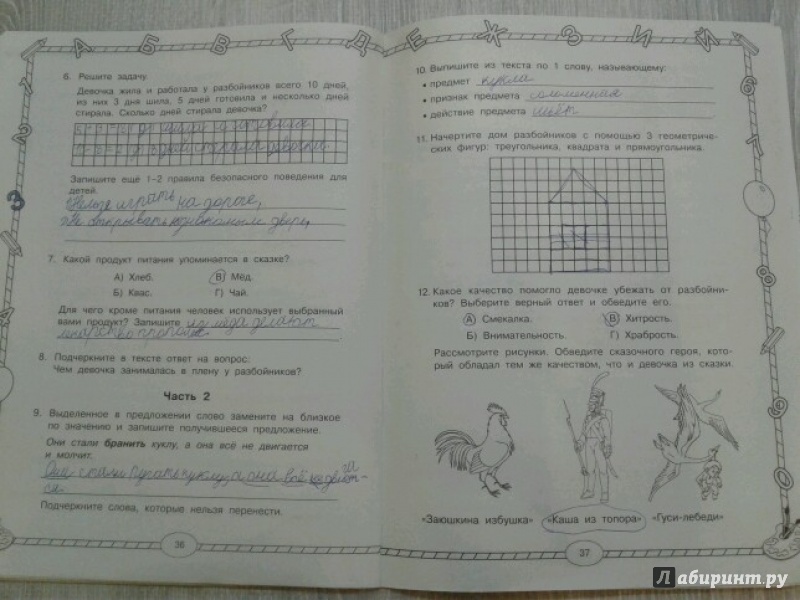 А Б В Г Д Е Ж З И Й
6. Решите задачу.
Девочка жила и работала у разбойников всего 10 дней,
из них 3 дня шила, 5 дней готовила и несколько дней
стирала. Сколько дней стирала девочка?
Запишите ещё 1–2 правила безопасного поведения для
детей.
Нельзя играть на дороге,
Не открывать незнакомым двери,
7. Какой продукт питания упоминается в сказке?
А) Хлеб. В) Мёд.
Б) Квас. Г) Чай.
Для чего кроме питания человек использует выбранный
вами продукт? Запишите из меда делают
лекарство прополис
8. Подчеркните в тексте ответ на вопрос:
Чем девочка занималась в плену у разбойников?
Часть 2
9. Выделенное в предложении слово замените на близкое
по значению и запишите получившееся предложение.
Они стали бранить куклу, а она всё не двигается
и молчит.
Они стали ругать куклу, а она всё не двига
ется.
Подчеркните слова, которые нельзя перенести.
36
10. Выпишите из текста по 1 слову, называющему:
• предмет кукла
• признак предмета соломенная
• действие предмета шьёт
11. Начертите дом разбойников с помощью 3 геометриче-
ских фигур: треугольника, квадрата и прямоугольника.
12. Какое качество помогло девочке убежать от разбойни-
ков? Выберите верный ответ и обведите его.
А) Смекалка. В) Хитрость.
Б) Внимательность. Г) Храбрость.
Рассмотрите рисунки. Обведите сказочного героя, кото-
рый обладал тем же качеством, что и девочка из сказки.
«Заюшкина избушка» «Каша из топора» «Гуси-лебеди»
37
Лабиринт.ру